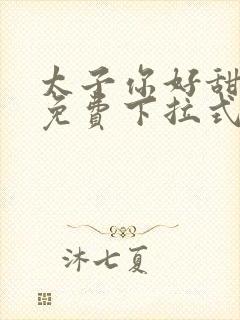 太子你好甜
免费下拉式
沐七夏